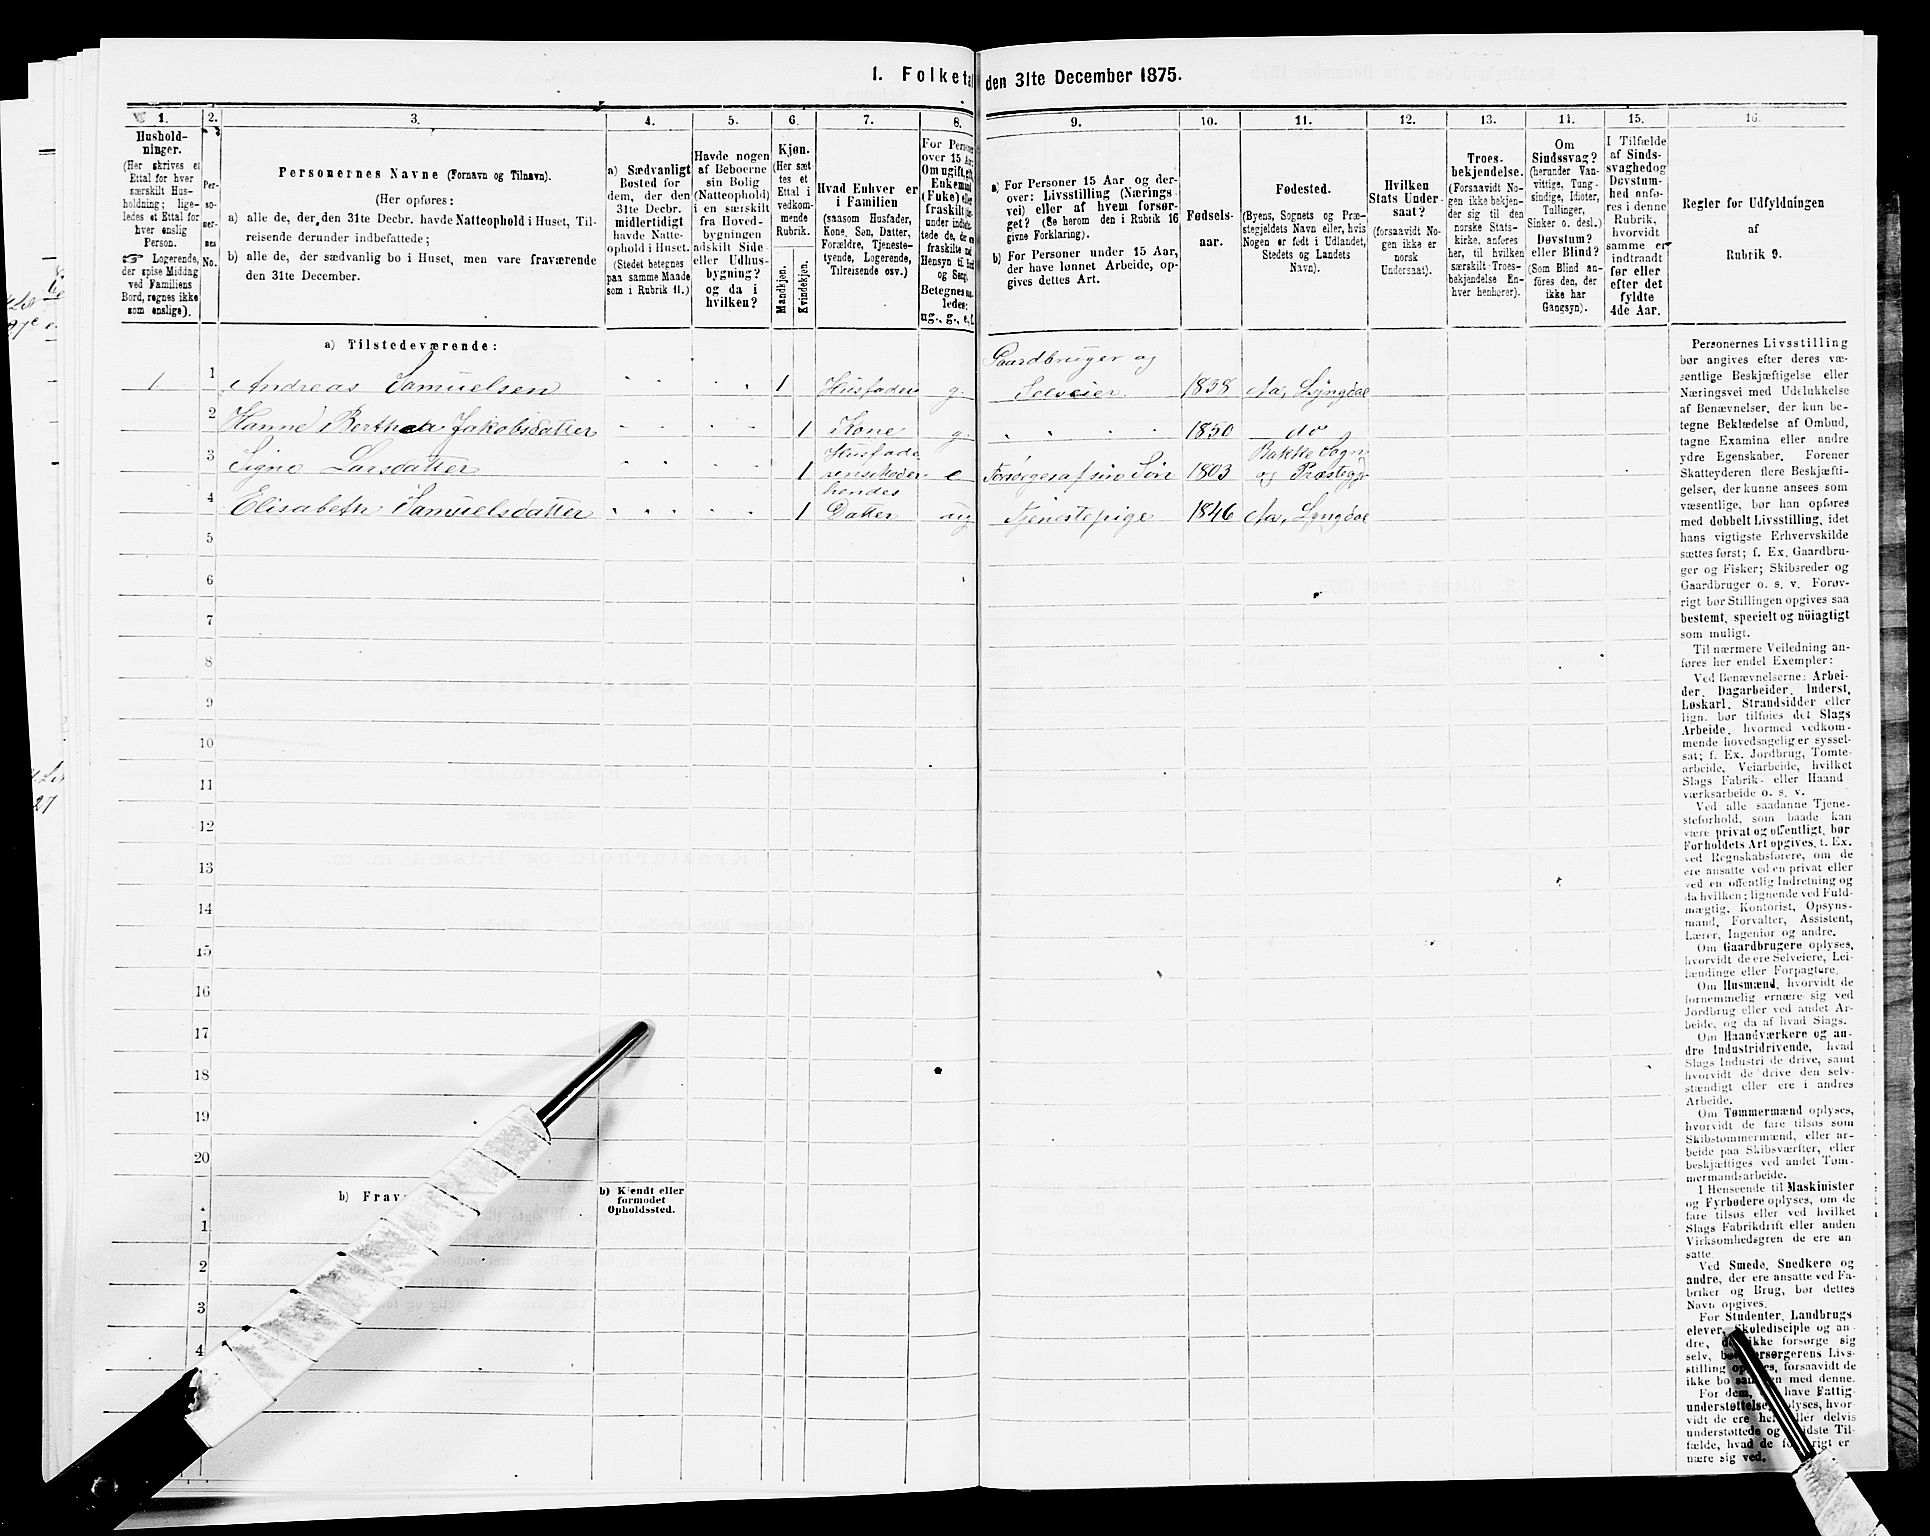 1. Folketal den 31te December 1875.
1. 2. 3. 4. 5. 6. 7. 8. 9. 10. 11. 12. 13. 14. 15. 16.
Hushold-
ninger.
(Her skrives et
Ettal for hver
særskilt Hus-
holdning; lige-
ledes et Ettal for
hver enslig
Person.
☞ Logerende,
der spise Middag
ved Familiens
Bord, regnes ikke
som enslige).
Per-
so-
ner-
nes
No.
Personernes Navne (Fornavn og Tilnavn).
(Her opføres:
a) alle de, der den 31te Decbr. havde Natteophold i Huset, Til-
reisende derunder indbefattede;
b) alle de, der sædvanlig bo i Huset, men vare fraværende
den 31te December.
a) Sædvanligt
Bosted for
dem, der den
31te Decbr.
midlertidigt
havde Natte-
ophold i Huset.
(Stedet betegnes
paa samme Maade
som i Rubrik 11.)
Havde nogen
af Beboerne
sin Bolig
(Natteophold)
i en særskilt
fra Hoved-
bygningen
adskilt Side-
eller Udhus-
bygning?
og da i
hvilken?
Kjøn.
(Her sæt-
tes et
Ettal i
vedkom-
mende
Rubrik.
Mandkjøn.
Kvindekjøn.
Hvad Enhver er
i Familien
(saasom Husfader,
Kone, Søn, Datter,
Forældre, Tjeneste-
tyende, Logerende,
Tilreisende osv.)
For Personer
over 15 Aar:
Om ugift, gift,
Enkemand
(Fuke) eller
fraskilt
under indbefat-
tede de, der ere
fraskilte med
Hensyn til Bord
og Seng.
Betegnes saa-
ledes:
ug., g., e., f.
a) For Personer 15 Aar og der-
over: Livsstilling (Nærings-
vei) eller af hvem forsør-
get? (Se herom den i Rubrik 16
givne Forklaring).
b) For Personer under 15 Aar,
der have lønnet Arbeide, op-
gives dettes Art.
Fødsels-
aar.
Fødested.
(Byens, Sognets og Præ-
stegjeldets Navn eller, hvis
Nogen er født i Udlandet,
Stedets og Landets
Navn).
Hvilken
Stats Under-
saat?
(forsaavidt No-
gen ikke er
norsk
Undersaat).
Troes-
bekjendelse.
(Forsaavidt No-
gen ikke bekjen-
der sig til den
norske Stats-
kirke, anføres
her, til hvilken
særskilt Troes-
bekjendelse En-
hver henhører).
Om
Sindssvag?
(herunder Van-
vittige, Tung-
sindige, Idioter,
Tullinger,
Sinker o. desl.)
Døvstum?
eller Blind?
(Som Blind an-
føres den, der
ikke har
Gangsyn).
I Tilfælde
af Sinds-
svaghed og
Døvstum-
hed anfø-
res i denne
Rubrik,
hvorvidt
samme er
indtraadt
før eller
efter det
fyldte
4de Aar.
Regler for Udfyldningen
af
Rubrik 9.
a) Tilstedeværende:
1 1 Andreas Samuelsen 1 Husfader g. Gaardbruger og Selveier 1838 Aa, Lyngdal
2 Hanne Berthea Jakobsdatter 1 Kone g. 1850 do
3 Signe Larsdatter 1 Husfaderens Moder e Forsørges af sin Søn 1803 Bakke Sogn og Præstegj.
4 Elisabeth Samuelsdatter 1 hendes Datter ug Tjenestepige 1846 Aa, Lyngdal
5
6
7
8
9
10
11
12
13
14
15
16
17
18
19
20
b) Frav
b) Kjendt eller
formodet
Opholdssted.
1
2
3
4
Personernes Livsstilling
bør angives efter deres væ-
sentlige Beskjæftigelse eller
Næringsvei med Udelukkelse
af Benævnelser, der kun be-
tegne Beklædelse af Ombud,
tagne Examina eller andre
ydre Egenskaber. Forener
Skatteyderen flere Beskjæfti-
gelser, der kunne ansees som
væsentlige, bør han opføres
med dobbelt Livsstilling, idet
hans vigtigste Erhvervskilde
sættes først; f. Ex. Gaardbru-
ger og Fisker; Skibsreder og
Gaardbruger o. s. v. Forøv-
rigt bør Stillingen opgives saa
bestemt, specielt og nöiagtigt
som muligt.
Til nærmere Veiledning an-
føres her endel Exempler:
Ved Benævnelserne: Arbei-
der, Dagarbeider, Inderst,
Løskarl, Strandsidder eller
lign. bør tilføies det Slags
Arbeide, hvormed vedkom-
mende hovedsagelig er syssel-
sat; f. Ex. Jordbrug, Tomte-
arbeide, Veiarbeide, hvilket
Slags Fabrik- eller Haand-
værksarbeide o. s. v.
Ved alle saadanne Tjene-
steforhold, som baade kan
være privat og offentligt, bør
Forholdets Art opgives, f. Ex.
ved Regnskabsførere, om de
ere ansatte ved en privat eller
ved en offentlig Indretning og
da hvilken; lignende ved Fuld-
mægtig, Kontorist, Opsyns-
mand, Forvalter, Assistent,
Lærer, Ingeniør og andre.
Om Gaardbrugere oplyses,
hvorvidt de ere Selveiere, Lei-
lændinge eller Forpagtere.
Om Husmænd, hvorvidt de
fornemmelig ernære sig ved
Jordbrug eller ved andet Ar-
beide, og da af hvad Slags.
Om Haandværkere og an-
dre Industridrivende, hvad
Slags Industri de drive, samt
hvorvidt de drive den selv-
stændigt eller ere i andres
Arbeide.
Om Tømmermænd oplyses,
hvorvidt de fare tilsøs som
Skibstømmermænd, eller ar-
beide paa Skibsværfter, eller
beskjæftiges ved andet Tøm-
mermandsarbeide.
I Henseende til Maskinister
og Fyrbødere oplyses, om de
fare tilsøs eller ved hvilket
Slags Fabrikdrift eller anden
Virksomhedsgren de ere an-
satte.
Ved Smede, Snedkere og
andre, der ere ansatte ved Fa-
briker og Brug, bør dettes
Navn opgives.
For Studenter, Landbrugs
elever, Skoledisciple og an-
dre, der ikke forsørge sig
selv, bør Forsørgerens Livs-
stilling opgives, forsaavidt de
ikke bo sammen med denne.
For dem, have Fattig-
understøttelse, oplyses, hvor-
vidt de ere helt eller delvis
understøttede og sidste Til-
fælde, hvad de forøvrigt er
nære sig ved.